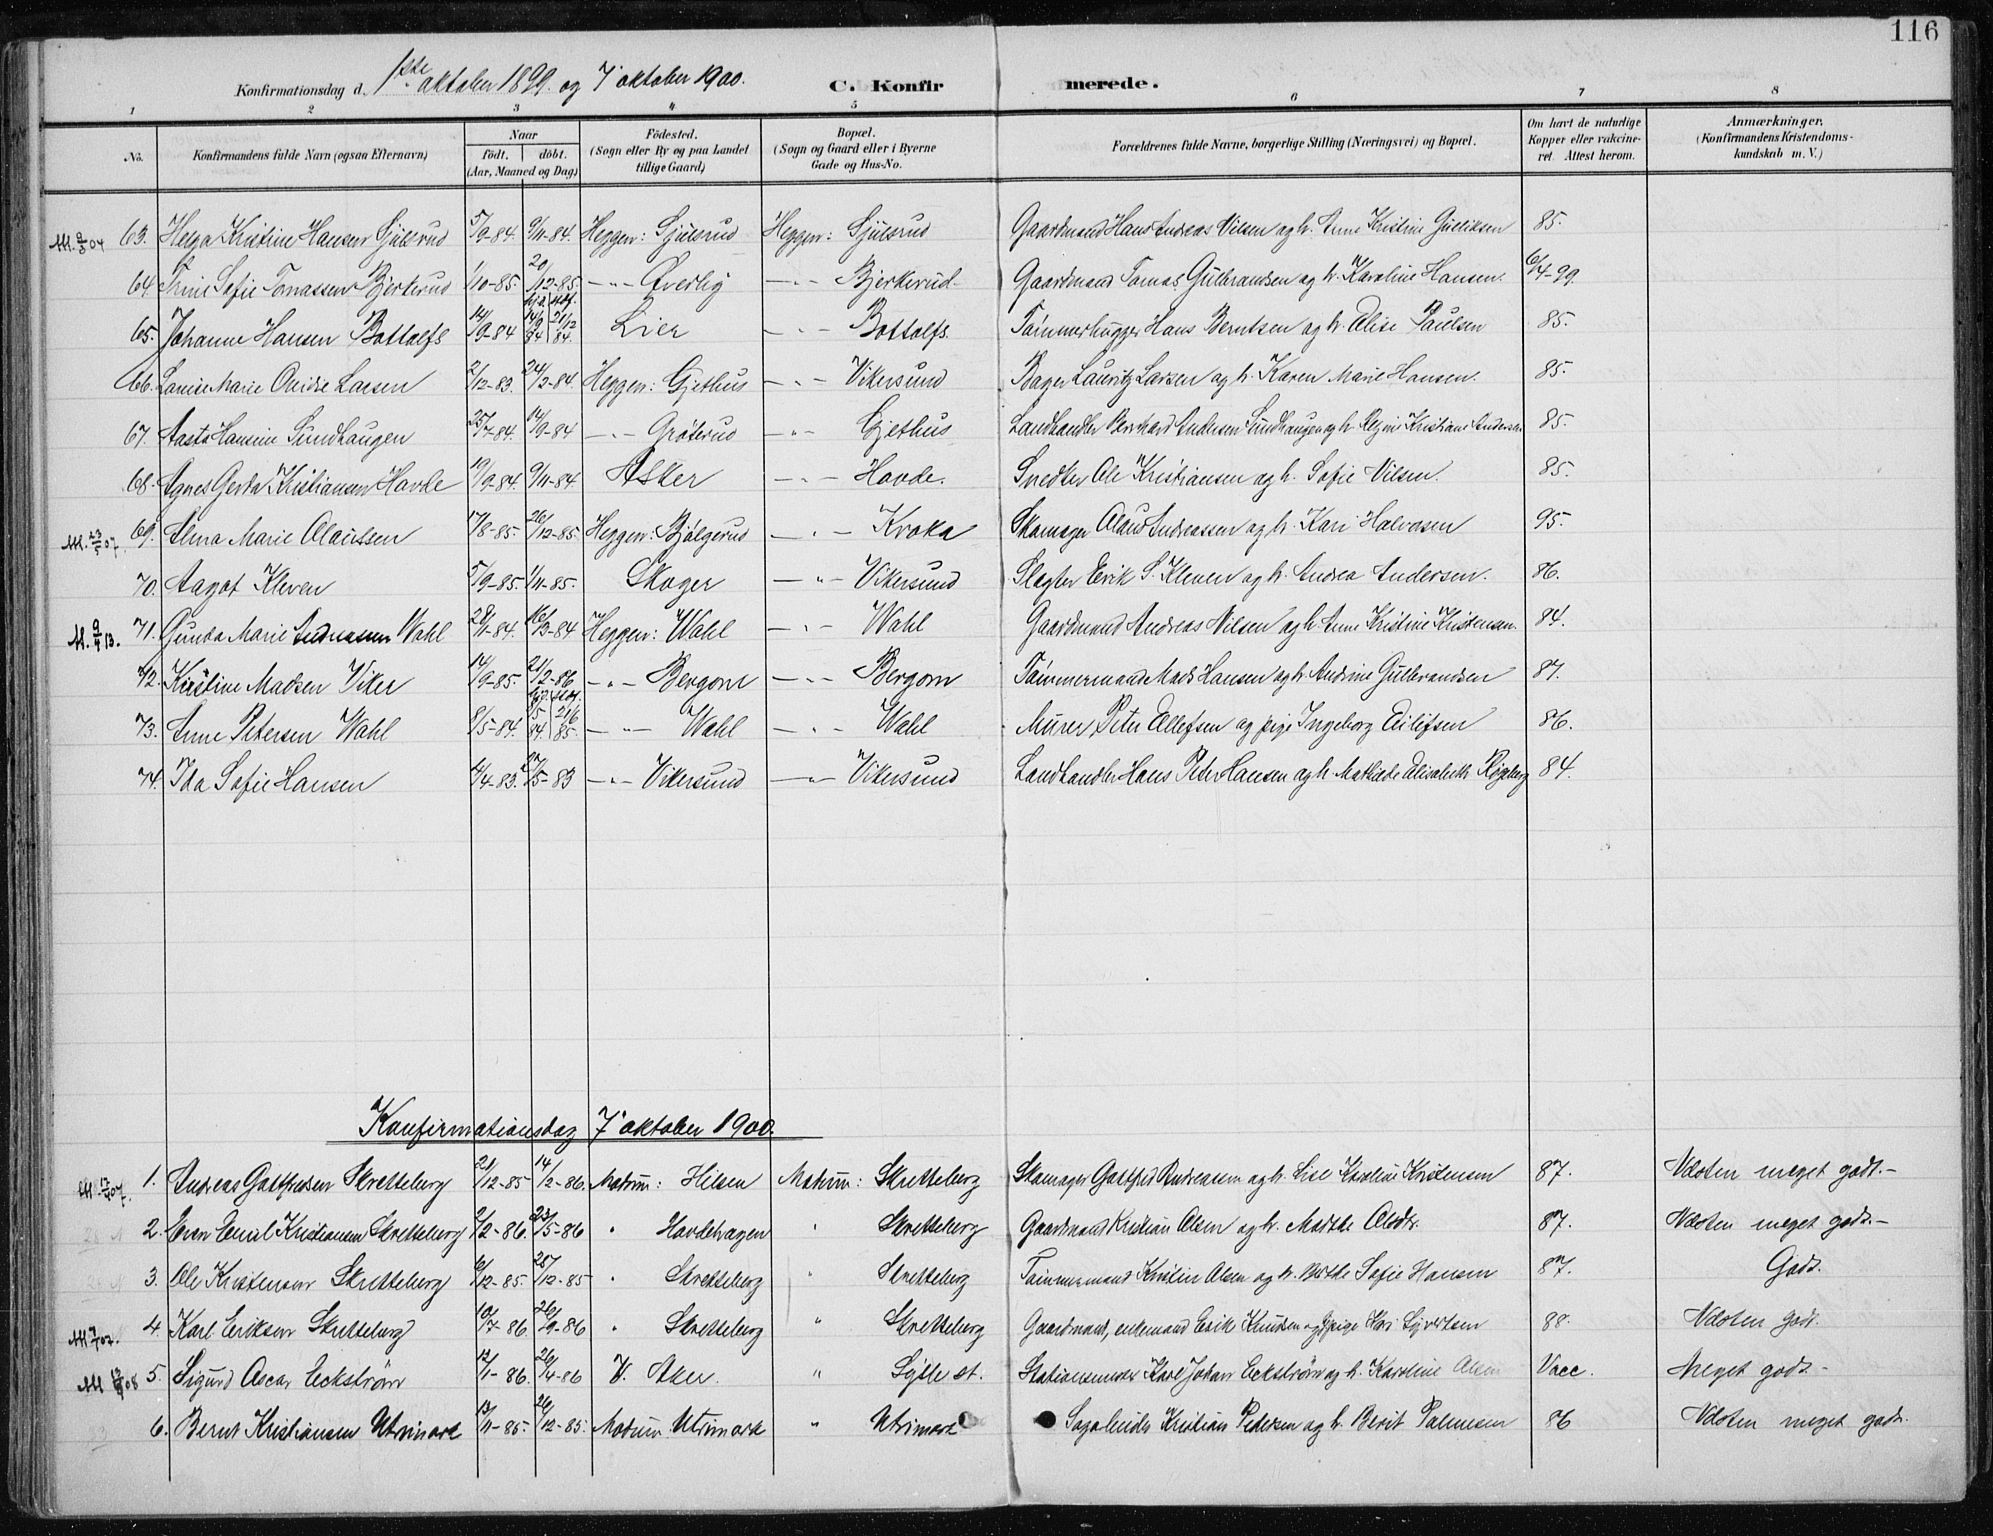 116
Konfirmationsdag d. 1ste oktober 1899. og 7' oktober 1900. C. Konfirmerede.
1 2 3 4 5 6 7 8
No. Konfirmandens fulde Navn (ogsaa Efternavn) Naar födt. döbt. (Aar, Maaned og Dag) Födested. (Sogn eller By og paa Landet tillige Gaard) Bopæl. (Sogn og Gaard eller i Byerne Gade og Hus-No. Forældrenes fulde Navne, borgerlige Stilling (Næringsvei) og Bopæl. Om havt de naturlige Kopper eller vakcineret. Attest herom. Anmærkninger. (Konfirmandens Kristendomskundskab m. V.)
63. Helga Kristine Hansen Sjulsrud 5/9-84. 9/11-84. Heggen: Sjulsrud Heggen: Sjulsrud Gaardmand Hans Andreas Nilsen og h. Anne Kristine Guliksen 85.
64. Trine Sofie Tomassen Bjerkerud 1/10-85. 20/12-85. -"- Overlig -"- Bjerkerud Gaardmand Tomas Gulbrandsen og h. Karoline Hansen. 6/7-99.
65. Johanne Hansen Bottolfs 14/9-84 21/12 84. Lier -"- Bottolfs. Tømmerhugger Hans Berntsen og h. Elise Paulsen 85.
66. Louise Marie Ovidie Larsen 2/12-83. 24/2-84. Heggen: Gjethus -"- Vikersund Bager Lauritz Larsen og h. Karen Marie Hansen. 85.
67. Aasta Hansine Sundhaugen 25/7-84. 14/9-84 -"- Grøterud -"- Gjethus Landhandler Andersen Sundhaugen og h. Regine Kristiane Andersen 85.
68. Agnes Gerda Kristiansen Hovde 19/9-84. 9/11-84 Asker -"- Hovde. Snedker Ole Kristiansen og h. Sofie Nilsen. 85.
69. Alma Marie Olausen 17/8-85. 26/12-85. Heggen: Bjølgerud -"- Kroka Skomager Olaus Andreassen og h. Kari Halvorsen 95.
70. Aagot Kleven 5/9-85. 1/11-85. Skoger -"- Vikersund Slagter Erik S. Kleven og h. Andrea Andersen. 86.
71. Gunda Marie Andreassen Wahl 29/1-84. 16/3-84 Heggen: Wahl -"- Wahl Gaardmand Andreas Nilsen og h. Anne Kristine Kristensen. 84.
72. Kristine Madsen Viker 14/9-85 21/2-86 -"- Bergom -"- Bergom Tømmermand Mads Hansen og h. Andrine Gulbrandsen 87.
73. Anne Petersen Wahl 8/5-84. 21/6 85. -"- Wahl -"- Wahl Murer Peter Ellefsen og pige Ingeborg Eilifsen 86.
74. Ida Sofie Hansen 4/4-83. 27/5-83 -"- Vikersund -"- Vikersund Landhandler Hans Peter Hansen og h. Mathilde Elisabeth 84.
Konfirmationsdag 7' oktober 1900.
1. Andreas Gottfredsen Skretteberg 21/12-85 14/2-86. Modum: Hilsen Modum: Skretteberg Skomager Gottfred Andreassen og h. Lise Karoline Kristensen 87. Ndoten meget godt.-
2. Even Emil Kristiansen Skretteberg 2/2-86. 23/5-86 " Hovdehagen " Skretteberg Gaardmand Kristian Olsen og h. Marthe Olsdtr. 87. Ndoten meget godt.-
3. Ole Kristensen Skretteberg 6/12-85. 28/12-85 " Skretteberg " Skretteberg Tømmermand Kristen Olsen og h. Sofie Hansen 87. Godt.
4. Karl Eriksen Skretteberg 10/7-86. 26/9-86 " Skretteberg " Skretteberg Gaardmand, enkemand Erik Knudsen og pige Kari Syvertsen 88. Ndoten godt.
5. Sigurd Oscar Eckstrøm 12/1-86. 26/4-86 V. Aker. " Sysle st. Stationsmester Karl Johan Eckstrøm og h. Karoline Olsen Vacc. Meget godt.-
6. Bernt Kristiansen Utvimark 13/11-85. 26/12-85. Modum Utvimark " Utvimark Kristian Pedersen og h. Berit Palmesen 86 Ndoten meget godt.